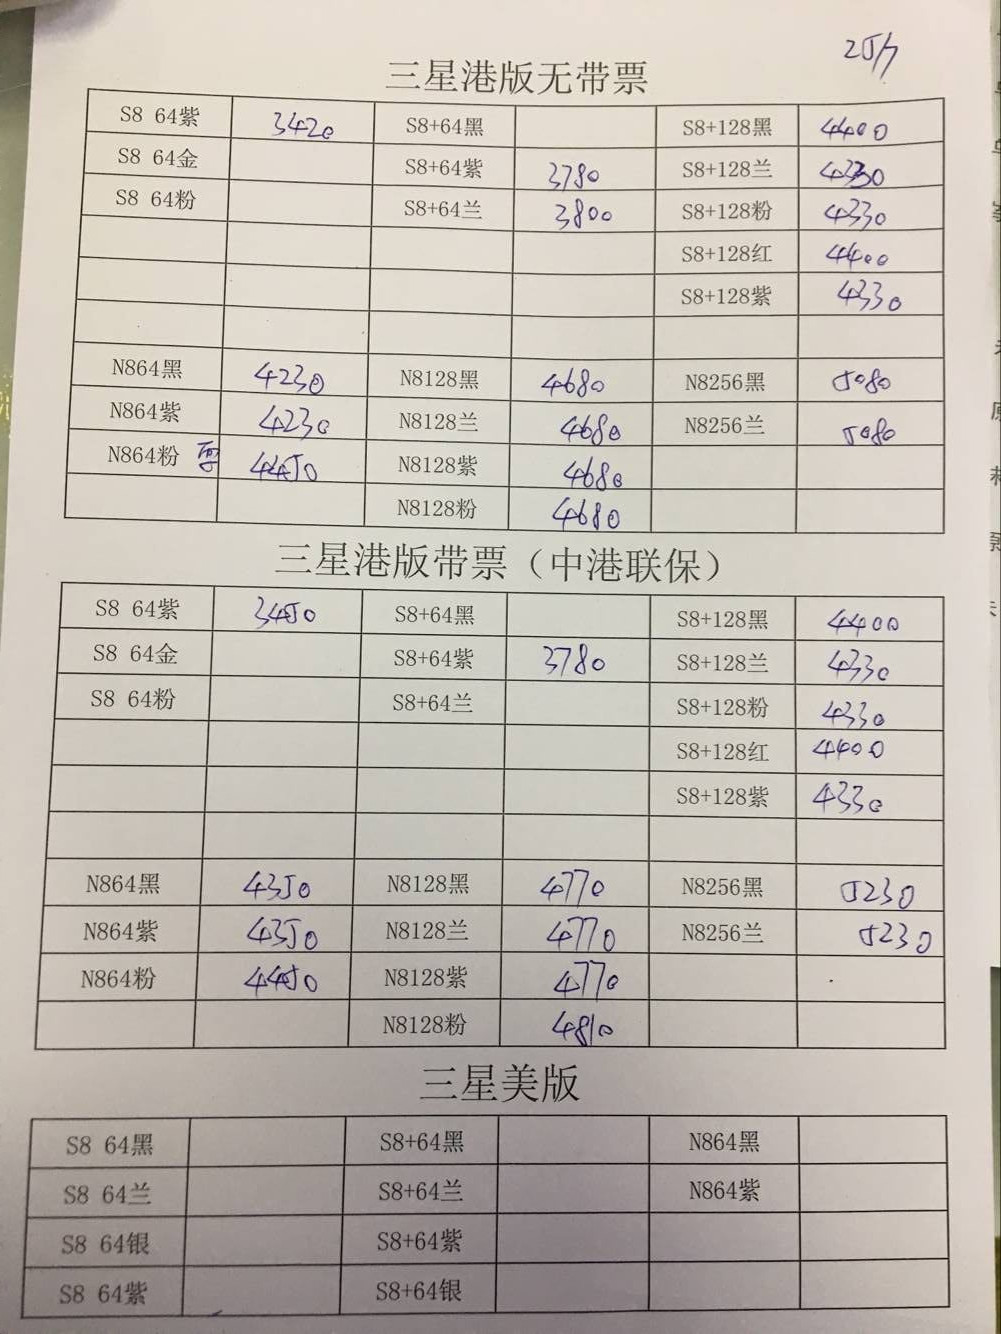 三星港版无带票
S8 64紫 3420 S8+64黑 S8+128黑 4400
S8 64金 S8+64紫 3780 S8+128兰 4330
S8 64粉 S8+64兰 3800 S8+128粉 4330
S8+128红 4400
S8+128紫 4330
N864黑 4230 N8128黑 4680 N8256黑 5080
N864紫 4230 N8128兰 4680 N8256兰 5080
N864粉 4450 N8128紫 4680
N8128粉 4680
三星港版带票（中港联保）
S8 64紫 3450 S8+64黑 S8+128黑 4400
S8 64金 S8+64紫 3780 S8+128兰 4330
S8 64粉 S8+64兰 S8+128粉 4330
S8+128红 4400
S8+128紫 4330
N864黑 4350 N8128黑 4770 N8256黑 5230
N864紫 4350 N8128兰 4770 N8256兰 5230
N864粉 4450 N8128紫 4770
N8128粉 4810
三星美版
S8 64黑 S8+64黑 N864黑
S8 64兰 S8+64兰 N864紫
S8 64银 S8+64紫
S8 64紫 S8+64银